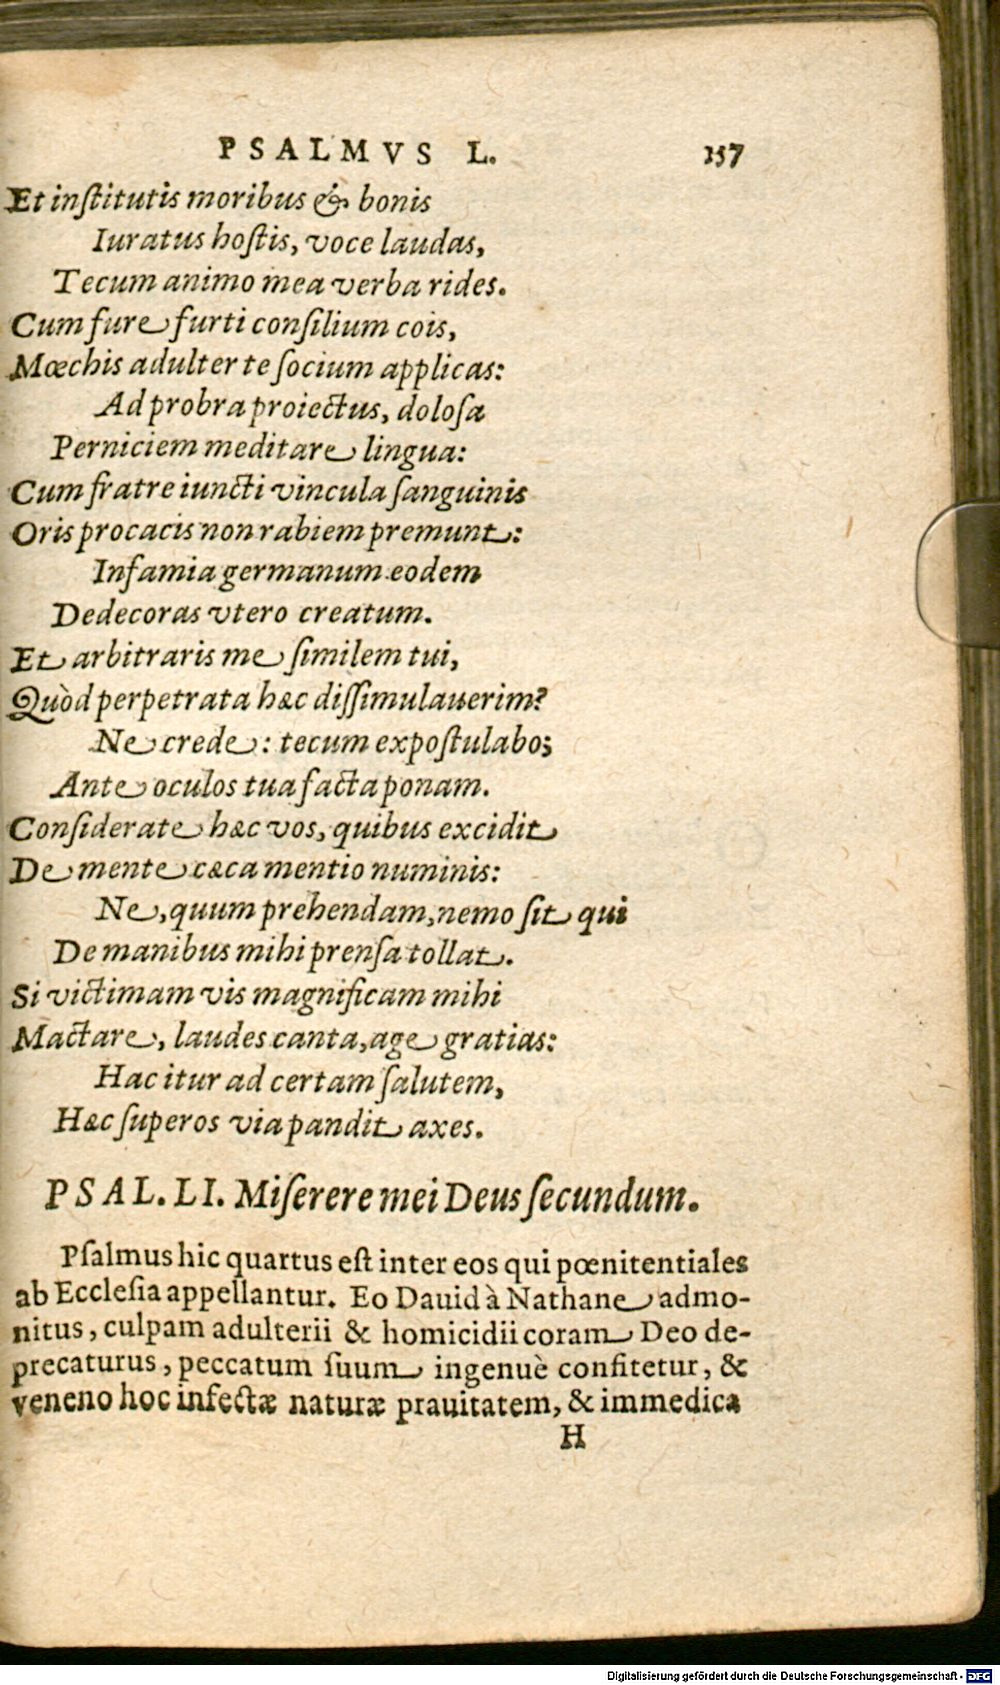 PSALMVS L. 157
Et inſtitutis moribus & bonis
Iuratus hoſtis, voce laudas,
Tecum animo mea verba rides.
Cum fure furti conſilium cois,
Mœchis adulter te ſocium applicas:
Ad probra proiectus, doloſa
Perniciem meditare lingua:
Cum fratre iuncti vincula ſanguinis
Oris procacis non rabiem premunt:
Infamia germanum eodem
Dedecoras vtero creatum.
Et arbitraris me ſimilem tui,
Quòd perpetrata hæc diſſimulauerim?
Ne crede: tecum expoſtulabo;
Ante oculos tua facta ponam.
Conſiderate hæc vos, quibus excidit
De mente cæca mentio numinis:
Ne, quum prehendam, nemo ſit qui
De manibus mihi prenſa tollat.
Si victimam vis magnificam mihi
Mactare, laudes canta, age gratias:
Hac itur ad certam ſalutem,
Hæc ſuperos via pandit axes.
PSAL. LI. Miſerere mei Deus ſecundum.
Pſalmus hic quartus eſt inter eos qui pœnitentiales
ab Eccleſia appellantur. Eo Dauid à Nathane admo-
nitus, culpam adulterii & homicidii coram Deo de-
precaturus, peccatum ſuum ingenuè confitetur, &
veneno hoc infectæ naturæ prauitatem, & immedica
H
Digitalisierung gefördert durch die Deutsche Forschungsgemeinschaft - DFG